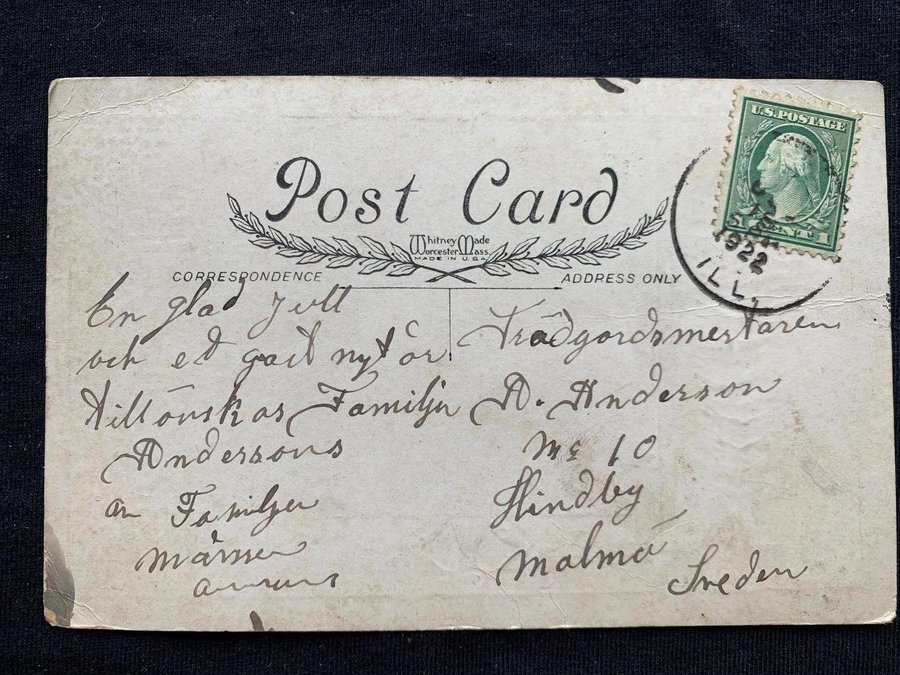 Post Card
Whitney Made
Worcester Mass.
MADE IN U.S.A.
CORRESPONDENCE
ADDRESS ONLY
U.S. POSTAGE
1922
ILL.
En glad Jull
och et gott nyt år
tillönskas Familjen
Andersons
av Familjen
Trädgordsmestaren
A. Anderson
10
Hindby
Malmö
Sveden